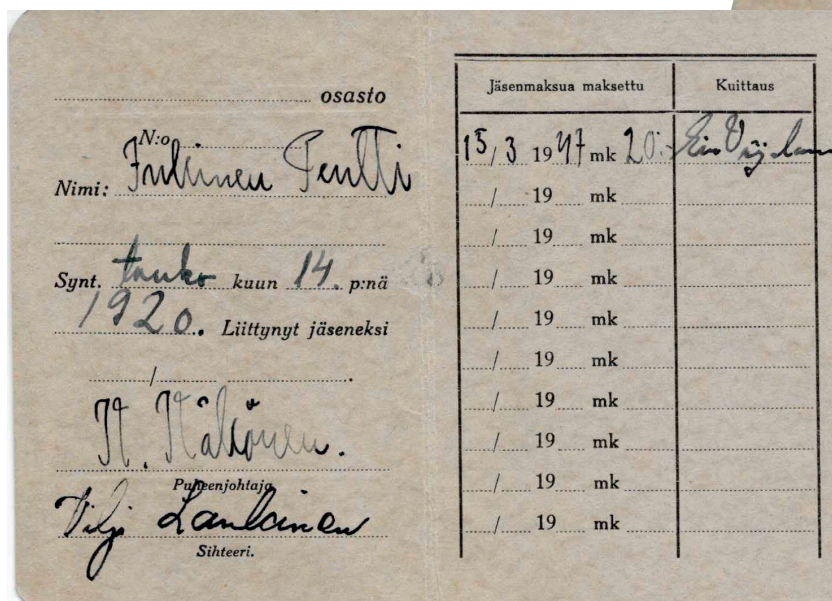 osasto
N:o
Nimi: Pentti
Synt. touko kuun 14. p:nä
1920. Liittynyt jäseneksi
/ .
Puheenjohtaja
Sihteeri.
Jäsenmaksua maksettu Kuittaus
15/3 1947 mk 20:-
/ 19 mk
/ 19 mk
/ 19 mk
/ 19 mk
/ 19 mk
/ 19 mk
/ 19 mk
/ 19 mk
/ 19 mk